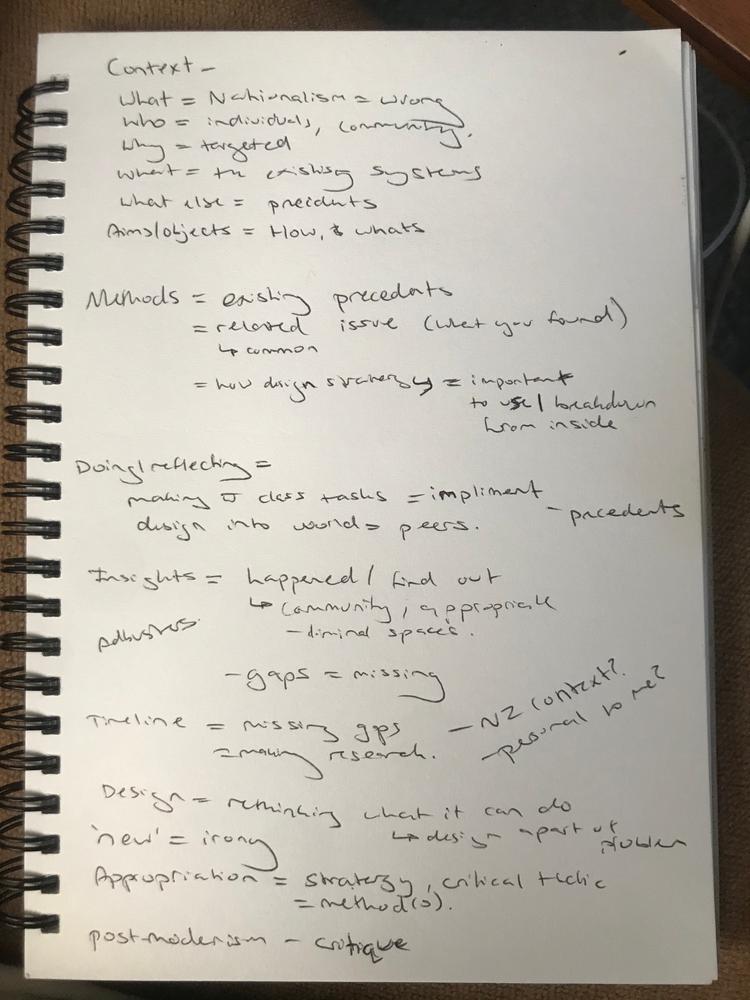 Context -
What = Nationalism = wrong
who = individuals, community.
Why = targeted
what = the existing systems
what else = precidents
Aims/objects = How, & whats
Methods = existing precedents
= related issue (what you found)
↳ common
= how design strategy = important
to use / breakdown
from inside
Doing/reflecting =
making class tasks = impliment
design into world = peers. - precedents
Insights = happened / find out
↳ community, appropriate
- liminal spaces.
Adbusters
- gaps = missing
Timeline = missing gps - NZ context?
= making research. - personal to me?
Design = rethinking what it can do
↳ design apart of problem
'new' = irony
Appropriation = strategy, critical tactic
= method(s).
post-moderism - critique